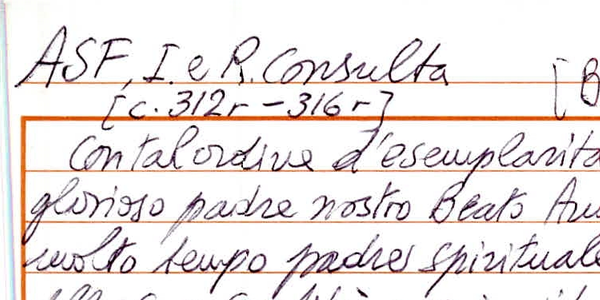 ASF, I. e R. Consulta [B
[c. 312r - 316r]
Contal ordine d'esemplarita
glorioso padre nostro Beato
molto tempo padre spirituale